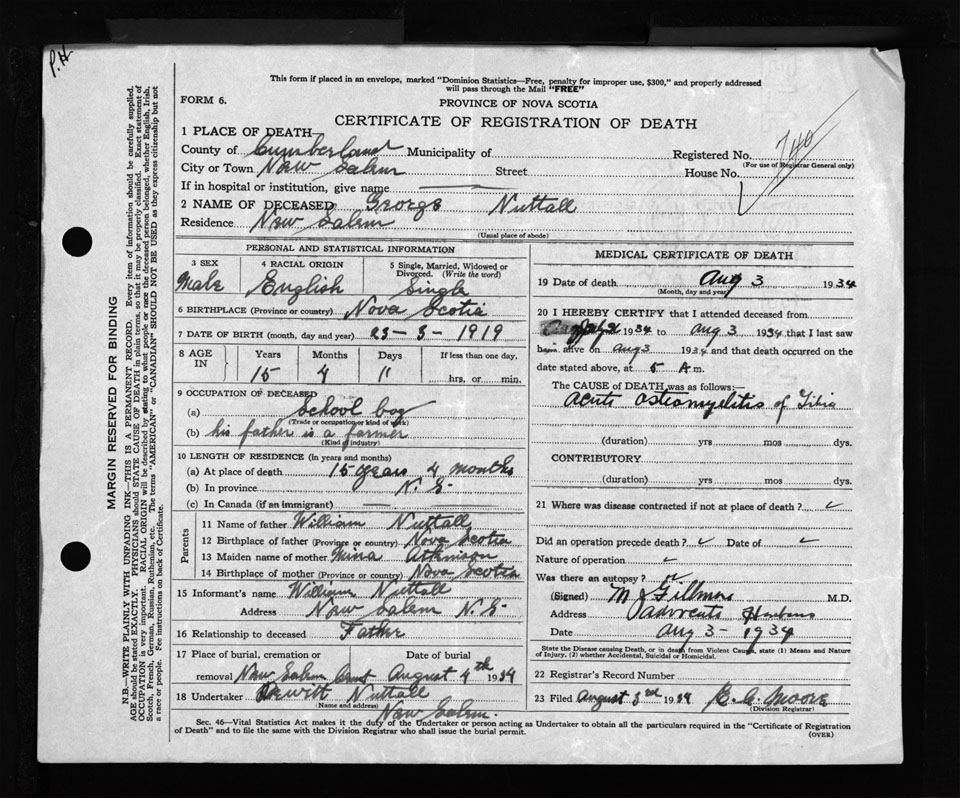 P.H.
This form if placed in an envelope, marked "Dominion Statistics—Free, penalty for improper use, $300," and properly addressed
will pass through the Mail "FREE"
FORM 6.
PROVINCE OF NOVA SCOTIA
CERTIFICATE OF REGISTRATION OF DEATH
1 PLACE OF DEATH
County of Cumberland Municipality of Registered No. 740
(For use of Registrar General only)
City or Town New Salem Street House No.
If in hospital or institution, give name
2 NAME OF DECEASED George Nuttall
Residence New Salem
(Usual place of abode)
PERSONAL AND STATISTICAL INFORMATION
3 SEX 4 RACIAL ORIGIN 5 Single, Married, Widowed or Divorced. (Write the word)
Male English Single
6 BIRTHPLACE (Province or country) Nova Scotia
7 DATE OF BIRTH (month, day and year) 23-3-1919
8 AGE IN Years Months Days If less than one day,
15 4 11 hrs. or min.
9 OCCUPATION OF DECEASED
(a) School boy
(Trade or occupation or kind of work)
(b) his father is a farmer
(Kind of industry)
10 LENGTH OF RESIDENCE (In years and months)
(a) At place of death 15 years 4 months
(b) In province N.S.
(c) In Canada (if an immigrant)
Parents
11 Name of father William Nuttall
12 Birthplace of father (Province or country) Nova Scotia
13 Maiden name of mother Mina Atkinson
14 Birthplace of mother (Province or country) Nova Scotia
15 Informant's name William Nuttall
Address New Salem N.S.
16 Relationship to deceased Father
17 Place of burial, cremation or Date of burial
removal New Salem August 4th 1934
18 Undertaker Hewitt Nuttall
(Name and address)
New Salem.
MEDICAL CERTIFICATE OF DEATH
19 Date of death Aug 3 1934
(Month, day and year)
20 I HEREBY CERTIFY that I attended deceased from
July 1934 to Aug 3 1934 that I last saw
him alive on Aug 3 1934 and that death occurred on the
date stated above, at 5 A.m.
The CAUSE OF DEATH was as follows:—
Acute Osteomyelitis of Tibia
(duration) yrs mos dys.
CONTRIBUTORY
(duration) yrs mos dys.
21 Where was disease contracted if not at place of death?
Did an operation precede death? Date of
Nature of operation
Was there an autopsy?
(Signed) M J Fillmore M.D.
Address Advocate Harbour
Date Aug 3-1934
State the Disease causing Death, or in death from Violent Causes, state (1) Means and Nature
of Injury, (2) whether Accidental, Suicidal or Homicidal.
22 Registrar's Record Number
23 Filed August 3rd 1934 Moore
(Division Registrar)
Sec. 46—Vital Statistics Act makes it the duty of the Undertaker or person acting as Undertaker to obtain all the particulars required in the "Certificate of Registration
of Death" and to file the same with the Division Registrar who shall issue the burial permit.
(OVER)
MARGIN RESERVED FOR BINDING
N.B.—WRITE PLAINLY WITH UNFADING INK—THIS IS A PERMANENT RECORD. Every item of information should be carefully supplied.
AGE should be stated EXACTLY. PHYSICIANS should STATE CAUSE OF DEATH in plain terms, so that it may be properly classified. Exact statement of
OCCUPATION is very important. RACIAL ORIGIN will be described by stating to what people or race the deceased person belonged, whether English, Irish,
Scotch, French, German, Russian, Ruthenian, etc. The terms "AMERICAN" or "CANADIAN" SHOULD NOT BE USED as they express citizenship but not
a race or people. Fee instructions on back of Certificate.